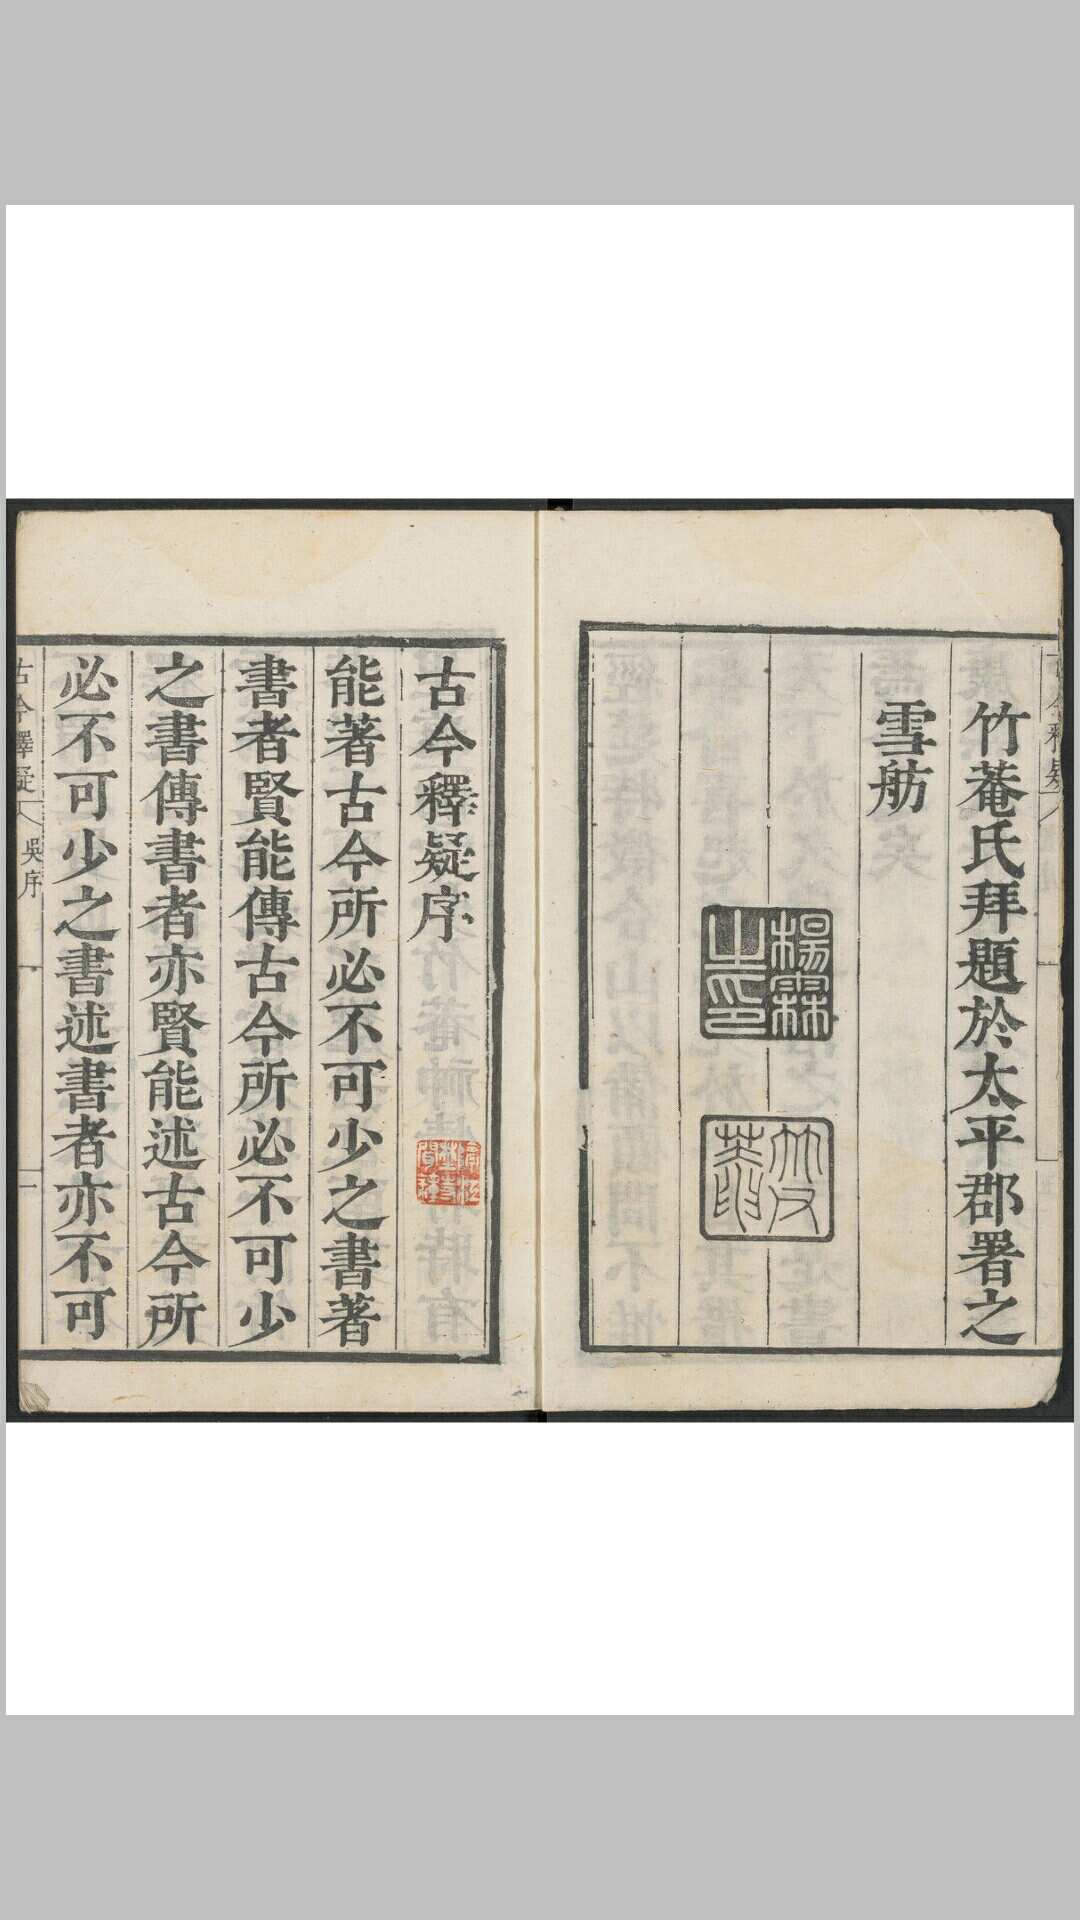 竹菴氏拜題於太平郡署之
雪舫
楊霖之印
竹菴
古今釋疑序
能著古今所必不可少之書著
書者賢能傳古今所必不可少
之書傳書者亦賢能述古今所
必不可少之書述書者亦不可
古今釋疑 吳序